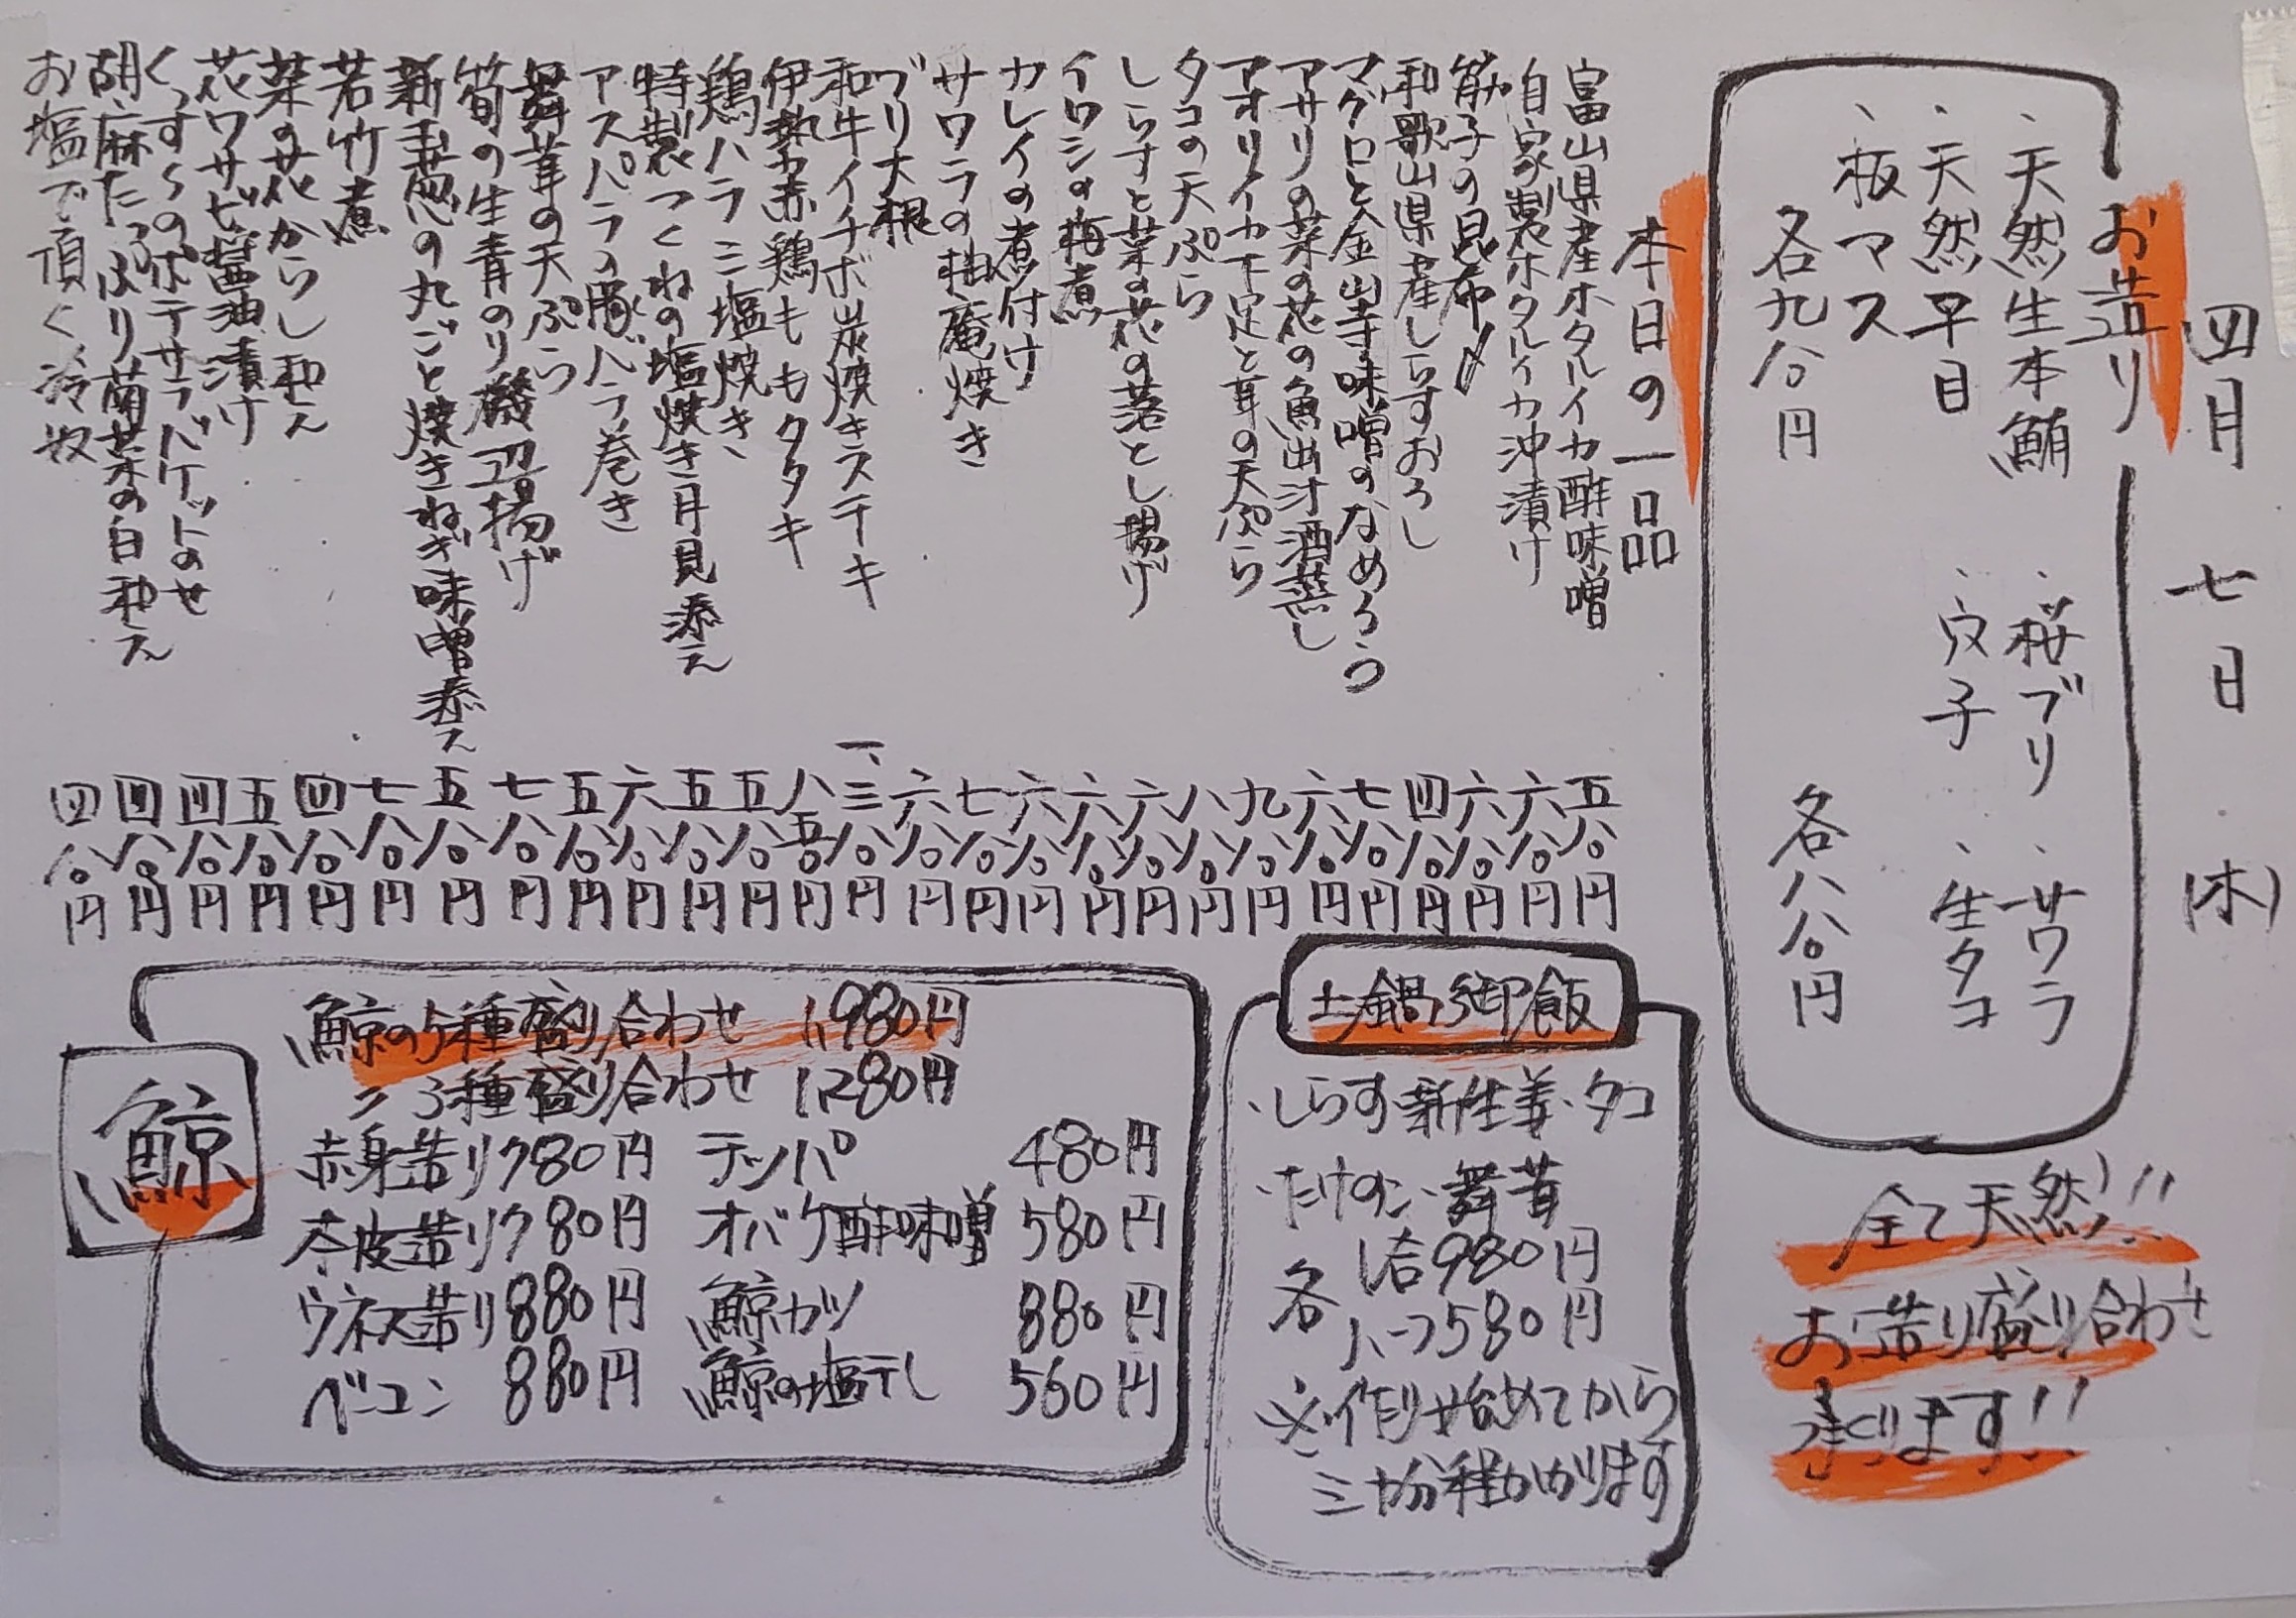 四月七日(木)
お造り
・天然生本鮪 ・桜ブリ ・サワラ
・天然早目 ・穴子 ・生タコ
・板マス
各九八〇円 各八八〇円
全て天然!!
お造り盛り合わせ
承ります!!
本日の一品
富山県産ホタルイカ酢味噌 五八〇円
自家製ホタルイカ沖漬け 六八〇円
筋子の昆布〆 六八〇円
和歌山県産しらすおろし 四八〇円
マグロと金山寺味噌のなめろう 七八〇円
アサリの菜の花の魚出汁酒蒸し 六八〇円
アオリイカ下足と茸の天ぷら 九八〇円
タコの天ぷら 八八〇円
しらすと菜の花の落とし揚げ 六八〇円
イワシの梅煮 六八〇円
カレイの煮付け 六八〇円
サワラの柚庵焼き 七八〇円
ブリ大根 六八〇円
和牛イチボ炭焼きステーキ 一、三八〇円
伊勢赤鶏ももタタキ 八五〇円
鶏ハラミ塩焼き 五八〇円
特製つくねの塩焼き月見添え 五八〇円
アスパラの豚バラ巻き 六八〇円
舞茸の天ぷら 五八〇円
筍の生青のり磯辺揚げ 七八〇円
新玉葱の丸ごと焼きねぎ味噌添え 五八〇円
若竹煮 七八〇円
菜の花からし和え 四八〇円
花ワサビ醤油漬け 五八〇円
くっす〜のポテサラバケットのせ 四八〇円
胡麻たっぷり菊菜の白和え 四八〇円
お塩で頂く冷奴 四八〇円
土鍋御飯
・しらす・新生姜・タコ
・たけのこ・舞茸
各 1合980円
ハーフ580円
※作り始めてから
三十分程かかります
鯨
鯨の5種盛り合わせ 1,980円
〃 3種盛り合わせ 1,280円
赤身造り780円 テッパ 480円
本皮造り780円 オバケ酢味噌 580円
ウネス造り880円 鯨カツ 880円
ベーコン 880円 鯨の塩干し 560円